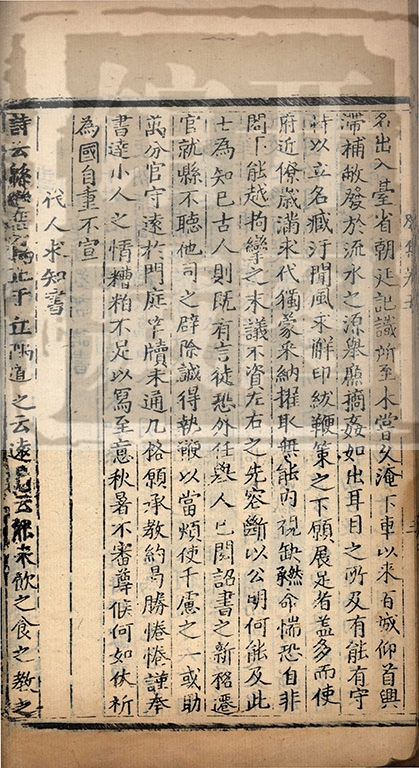 名出入臺省朝廷記識所至未嘗久淹下車以來百城仰首興
滯補敝發於流水之源舉廉摘姦如出耳目之所及有能有守
時以立名臧汙聞風求解印紱鞭策之下願展足者蓋多而使
府近僚歲滿求代獨蒙采納擢取無能內視缺然承命惴恐自非
閤下能越拘攣之末議不資左右之先容斷以公明何能及此
士為知已古人則既有言徒恐外任舉人已閡詔書之新格遷
官就縣不聽他司之辟除誠得執鞭以當煩使千慮之一或助
萬分官守遠於門庭竿牘未通几格願承教約曷勝惓惓謹奉
書達小人之情糟粕不足以寫至意秋暑不審尊候何如伏祈
為國自重不宣
代人求知書
詩云緜蠻黃鳥止于丘隅道之云遠我勞云如何飲之食之教之